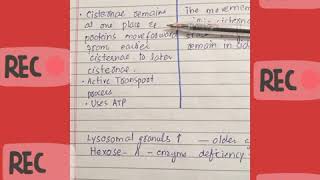 REC
• Cisternae remains
at one place &
proteins move forward
from earlier
cisternae to later
cisternae.
• Active Transport
process
• Uses ATP
The movemen
cisternae
remain in
Lysosomal granules ↑ — older
Hexose - A - enzyme deficiency
REC